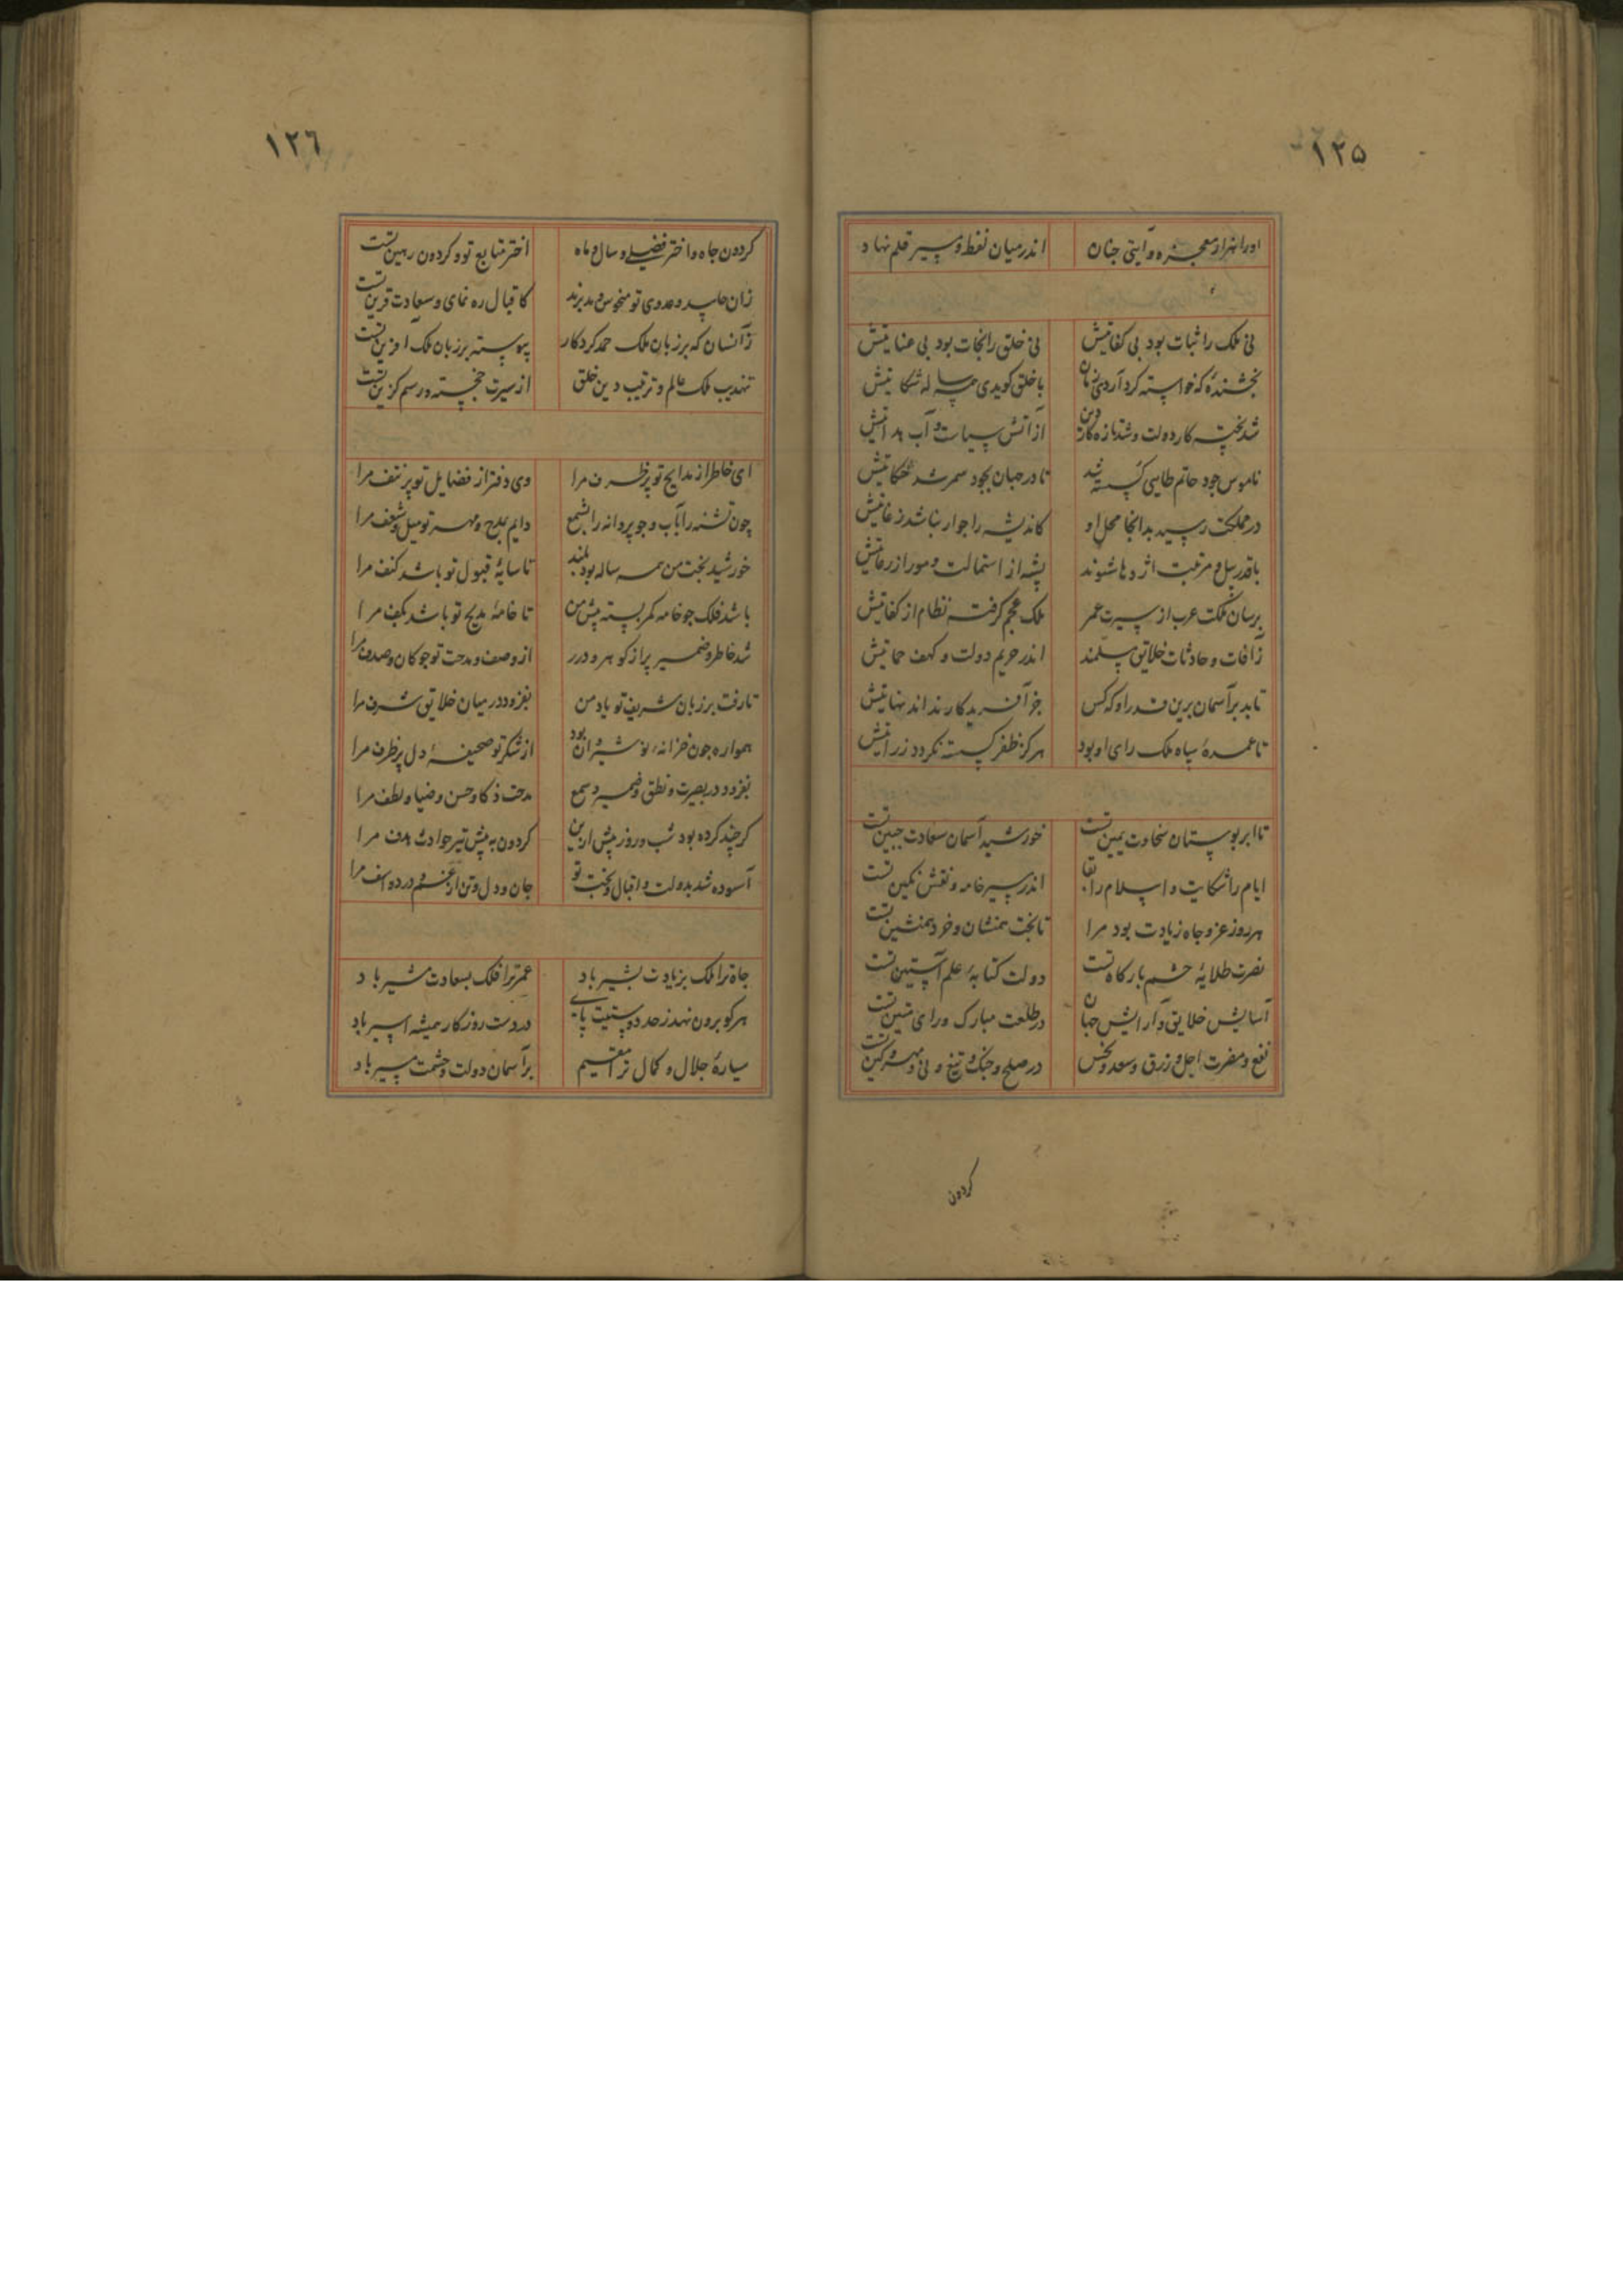 ١٢٥
او را هزار معجزه و آیتی چنان اندر میان نقط و سر قلم نهاد
نی ملک را ثبات بود بی کفایتش نی خلق را نجات بود بی عنایتش
بخشنده که خواسته کرد آرد با خلق کوید شکایتش
شد پخته کار دولت و شد تازه کار دین از آتش سیاست و آب هدایتش
ناموس جود حاتم طایی کسسته شد تا در جهان بجود سمر شد حکایتش
در مملکت رسید بدانجا محل او کاندیشه را جواز نباشد ز غایتش
با قدر پیل و مرتبت اژدها شوند پشه از استمالت و مور از رعایتش
برسان ملکت عرب از سیرت عمر ملک عجم کرفت نظام از کفایتش
ز آفات و حادثات خلایق مسلمند اندر حریم دولت و کهف حمایتش
تابد بر آسمان برین قدر او که کس جز آفریدکار نداند نهایتش
تا عمدهٔ سپاه ملک رای او بود هرکز ظفر کسسته نکردد ز رایتش
تا ابر بوستان سخاوت یمین تست خورشید آسمان سعادت جبین تست
ایام را شکایت و اسلام را بقا اندر سر خامه و نقش نکین تست
هر روز عز و جاه زیادت بود مرا تا بخت همنشان و خرد همنشین تست
نصرت طلایهٔ حشم بارکاه تست دولت کتابهٔ علم آستین تست
آسایش خلایق و آرایش جهان در طلعت مبارک و رای متین تست
نفع و مضرت اجل و رزق و سعد و نحس در صلح و جنک و تیغ و نی و مهر و کین تست
کردون
١٢٦
کردون جاه و اختر فضلی و سال و ماه اختر متابع تو و کردون رهین تست
زان حاسد و عدوی تو منحوس و مدبرند کاقبال ره نمای و سعادت قرین تست
زانسان که بر زبان ملک حمد کردکار پیوسته بر زبان ملک آفرین تست
تهذیب ملک عالم و ترتیب دین خلق از سیرت خجسته و رسم کزین تست
ای خاطر از مدایح تو پر طرف مرا وی دفتر از فضایل تو پر نتف مرا
چون تشنه را بآب و چو پروانه را بشمع دایم بمدح و مهر تو میل و شعف مرا
خورشید بخت من همه ساله بود بلند تا سایهٔ قبول تو باشد کنف مرا
باشد فلک چو خامه کمر بسته پیش من تا خامهٔ مدیح تو باشد بکف مرا
شد خاطر و ضمیر پر از کوهر و درر از وصف و مدحت تو چو کان و صدف مرا
تا رفت بر زبان شریف تو یاد من بفزود در میان خلایق شرف مرا
همواره چون خزانهٔ نوشیروان بود از شکر تو صحیفهٔ دل پر ظرف مرا
بفزود در بصیرت و نطق و ضمیر و سمع مدحت ذکا و حسن و ضیا و لطف مرا
کرچند کرده بود شب و روز پیش ازین کردون به پیش تیر حوادث هدف مرا
آسوده شد بدولت و اقبال و بخت تو جان و دل و تن از غم و درد و اسف مرا
جاه ترا ملک بزیادت بشیر باد عمر ترا فلک بسعادت مشیر باد
هرکو برون نهد ز حدود پای در دست روزکار همیشه اسیر باد
سیارهٔ جلال و کمال ترا مقیم بر آسمان دولت و حشمت مسیر باد